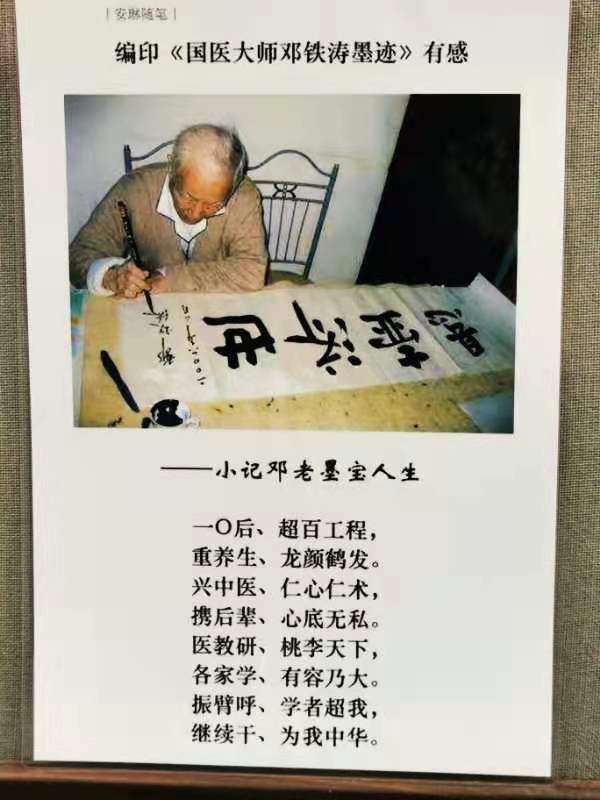 |安琳随笔|
编印《国医大师邓铁涛墨迹》有感
悬壶济世
——小记邓老墨宝人生
一〇后、超百工程，
重养生、龙颜鹤发。
兴中医、仁心仁术，
携后辈、心底无私。
医教研、桃李天下，
各家学、有容乃大。
振臂呼、学者超我，
继续干、为我中华。